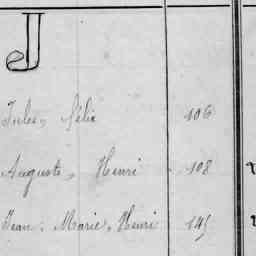 J
Jules, Félix 106
Auguste, Henri 108
Jean, Marie, Henri 145